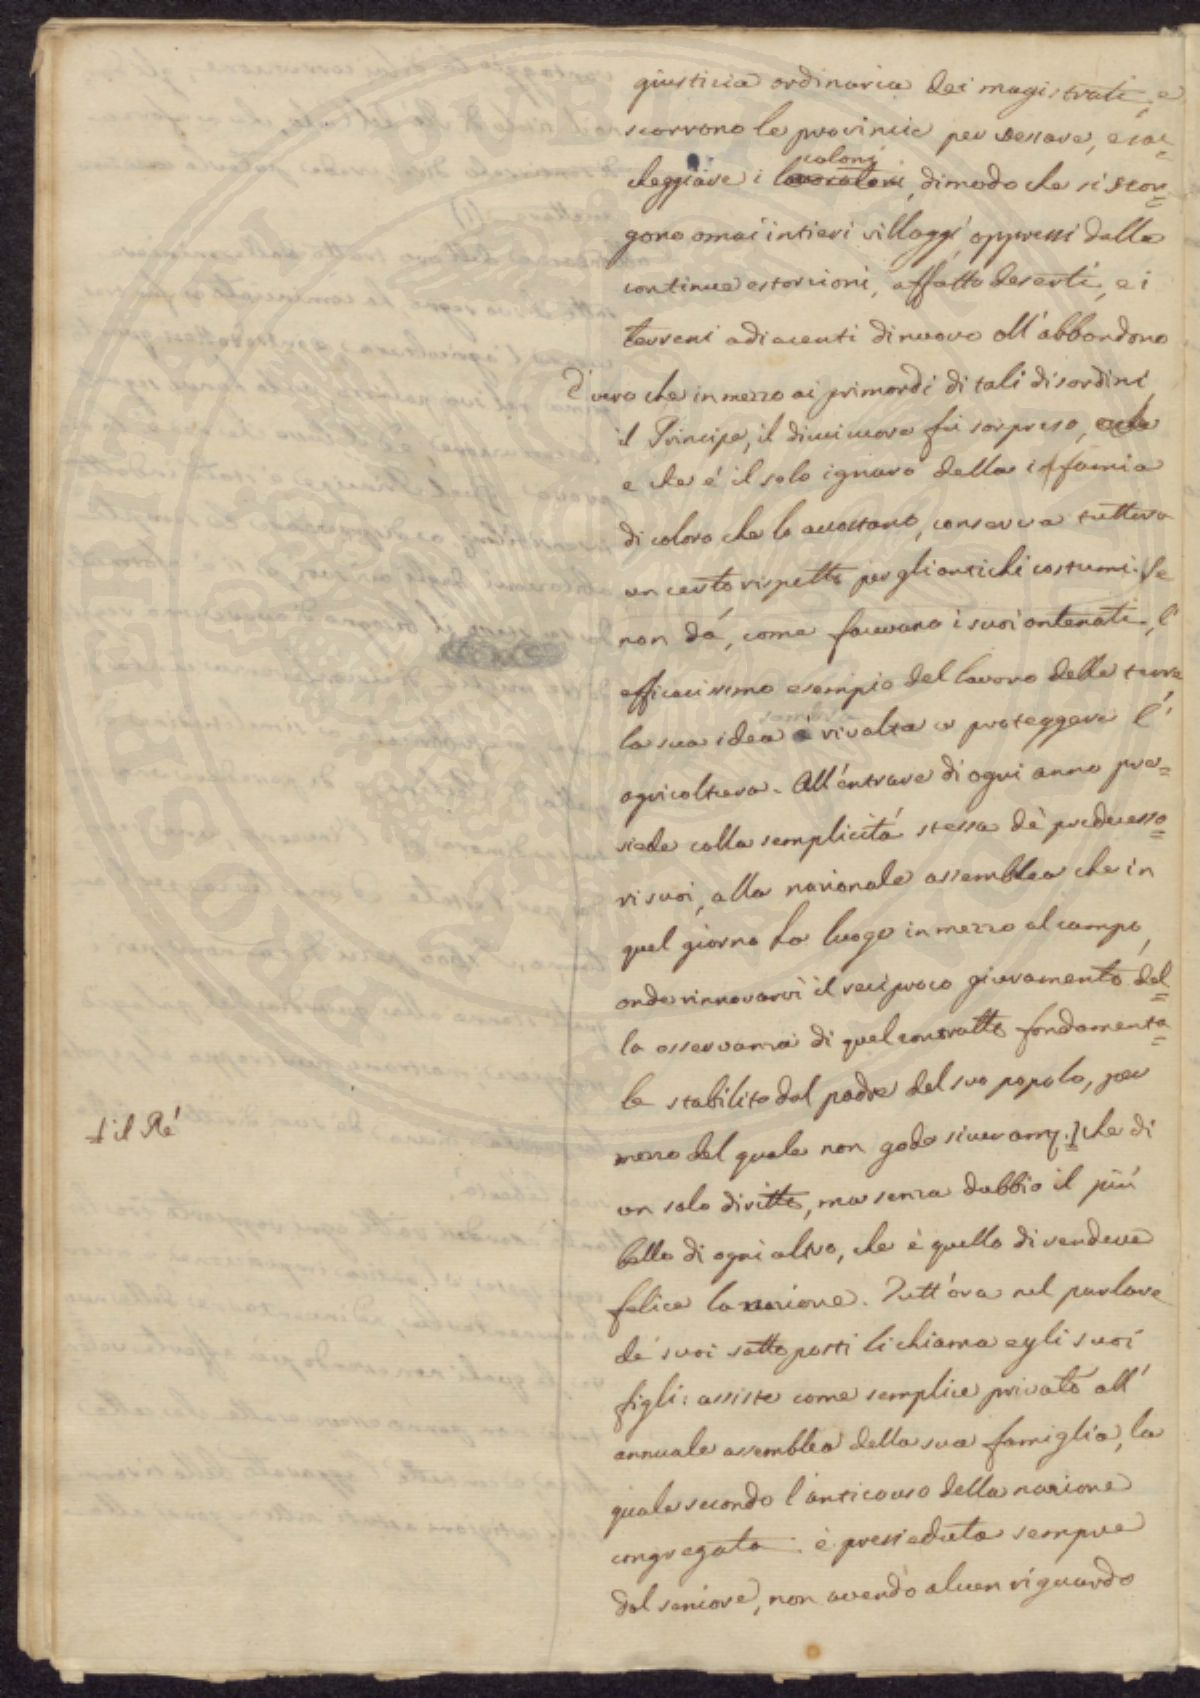 giusticia ordinaria dei magistrati, e
scorrono le provincie per vessare, e sac=
cheggiare i lavoratori coloni, dimodo che si scor=
gono omai intieri villaggi oppressi dalle
continue estorsioni, affatto deserti, e i
terreni adiacenti di nuovo all'abbandono
È vero che in mezzo ai primordi di tali disordini
il Principe, il di cui cuore fu sorpreso,
e che é il solo ignaro della infamia
di coloro che lo accostano, conserva tuttora
un certo rispetto per gli antichi costumi. Se
non dá, come facevano i suoi antenati, l'
efficacissimo esempio del lavoro delle terre
la sua idea sembra rivolta a proteggere l'
agricoltura. All'entrare di ogni anno pre=
siede colla semplicitá stessa de' predecesso=
ri suoi, alla nazionale assemblea che in
quel giorno ha luogo in mezzo al campo,
onde rinnovarvi il reciproco giuramento del=
la osservanza di quel contratto fondamenta=
le stabilito dal padre del suo popolo, per
‡ il Ré
mezzo del quale non gode che di
un solo diritto, ma senza dubbio il piú
bello di ogni altro, che è quello di rendere
felice la nazione. Tutt'ora nel parlare
de' suoi sottoposti li chiama egli suoi
figli: assiste come semplice privato all'
annuale assemblea della sua famiglia, la
quale secondo l'antico uso della nazione
congregata è presieduta sempre
dal seniore, non avendo alcun riguardo